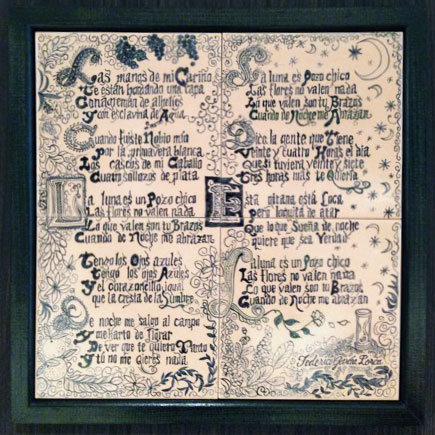 Las manos de mi Cariño
Te están bordando una capa
Con agremán de alhelíes
Y con esclavina de Agua
Cuando fuiste Nobio mío
Por la primavera blanca
Los cascos de mi Caballo
Cuatro sollozos de plata
La luna es un Pozo chico
Las flores no valen nada
Lo que valen son tu Brazos
Cuando de Noche me abrazan
Tengo los Ojos azules
tengo los ojos Azules
y el corazoncito igual
que la cresta de la Lumbre
De noche me salgo al campo
y me harto de llorar
De ver que te quiero Tanto
y tú no me quieres nada
La luna es un Pozo chico
Las flores no valen nada
Lo que valen son tu Brazos
Cuando de Noche me Abrazan
Dice la gente que Tiene
Veinte y cuatro Horas el día
Que si tuviera veinte y siete
Tres horas más te Quería
Esta gitana está Loca
Pero loquita de atar
Que lo que Sueña de noche
quiere que sea Verdad
La luna es un Pozo chico
Las flores no valen nada
Lo que valen son tu Brazos
Cuando de Noche me abrazan
Federico García Lorca